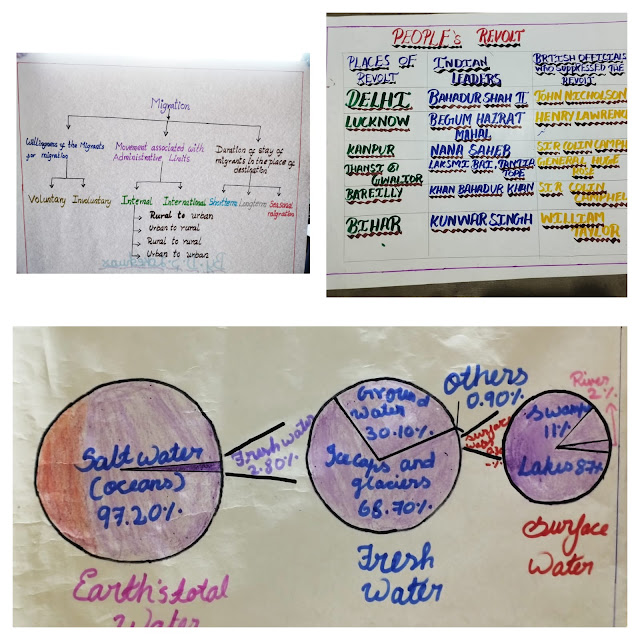 Migration
Willingness of the Migrants
for migration
Movement associated with
Administrative Limits
Duration of stay of
migrants in the place of
destination
Voluntary
Involuntary
Internal
International
Shortterm
Longterm
Seasonal
migration
Rural to urban
Urban to rural
Rural to rural
Urban to urban
PEOPLE'S REVOLT
PLACES OF
REVOLT
INDIAN
LEADERS
BRTISH OFFICIALS
WHO SUPPRESSED THE
REVOLT
DELHI
BAHADUR SHAH II
JOHN NICHOLSON
LUCKNOW
BEGUM HAZRAT
MAHAL
HENRY LAWRENC
KANPUR
NANA SAHEB
SIR COLIN CAMP
JHANSI &
GWALIOR
LAKSMI BAI, TANTIA
TOPE
GENERAL HUGE
ROSE
BAREILLY
KHAN BAHADUR KHAN
SIR COLIN
CAMPBEL
BIHAR
KUNWAR SINGH
WILLIAM
TAYLOR
Salt water
(oceans)
97.20%
Fresh water
2.80%
Earth's total
Water
Ground
Water
30.10%
Icecaps and
glaciers
68.70%
Fresh
Water
Others
0.90%
Surface
Swamps
11%
Lakes 87%
River
2%
Surface
Water